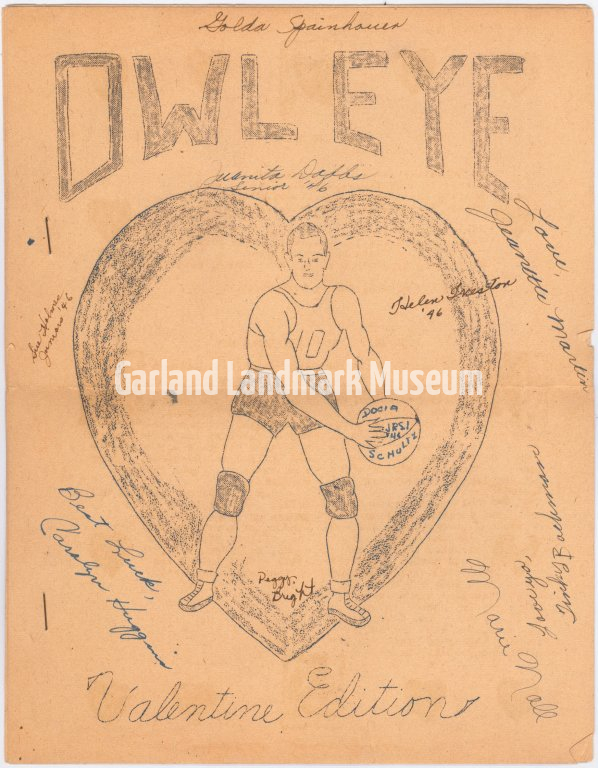 Golda Spainhouer
OWL EYE
Juanita Dabbs
Senior '46
Love,
Jeanette Martin
Helen Preston
'46
Sue
Juniors '46
10
Garland Landmark Museum
DOCIA
JRS!
'46
SCHULTZ
Best Luck,
Carolyn Huggins
Peggy
Bright
Marie Noll
Valentine Edition